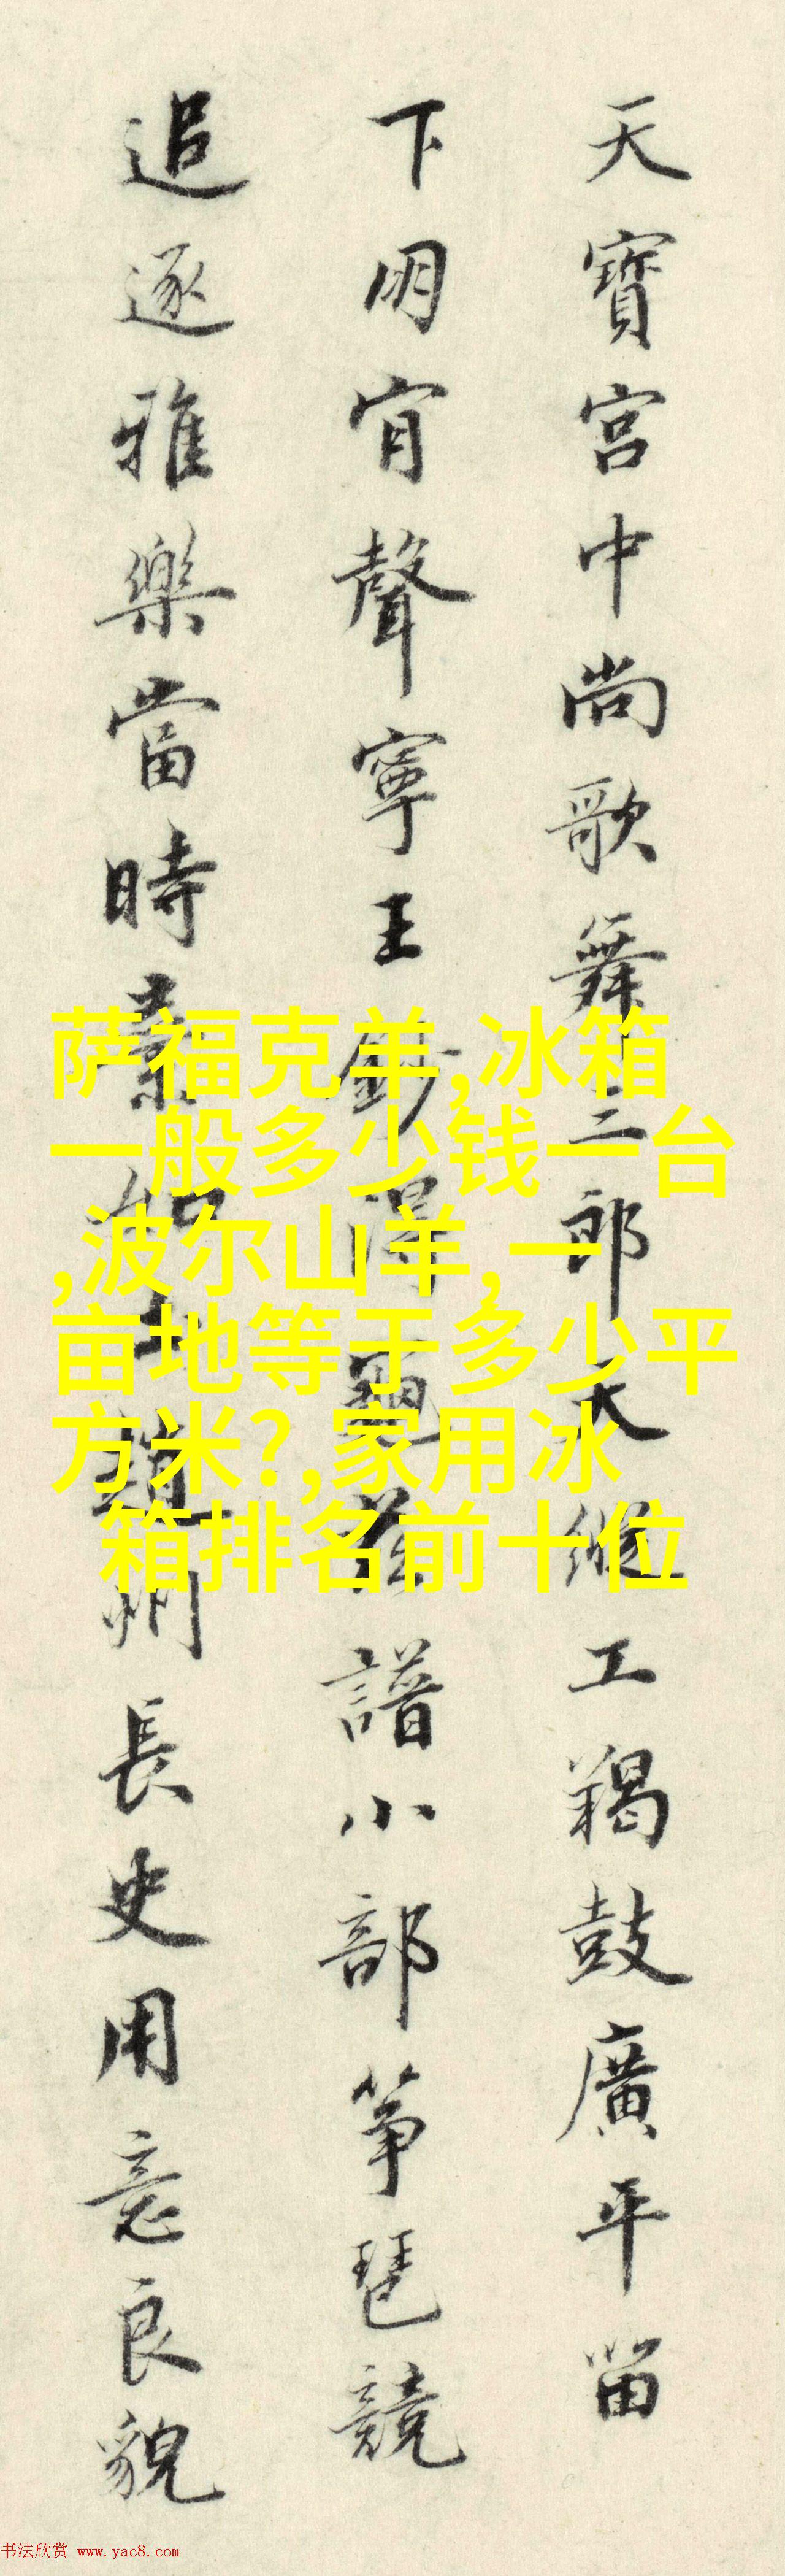 天寶宮中尚歌舞三郎天縱工羯鼓廣平留
下朋肯聲寧王鈔得龜茲譜小部箏琶競
追逐雅樂當時州長史用意良貌
萨福克羊,冰箱
一般多少钱一台
,波尔山羊,一
亩地等于多少平
方米?,家用冰
箱排名前十位
书法欣赏 www.yac8.com